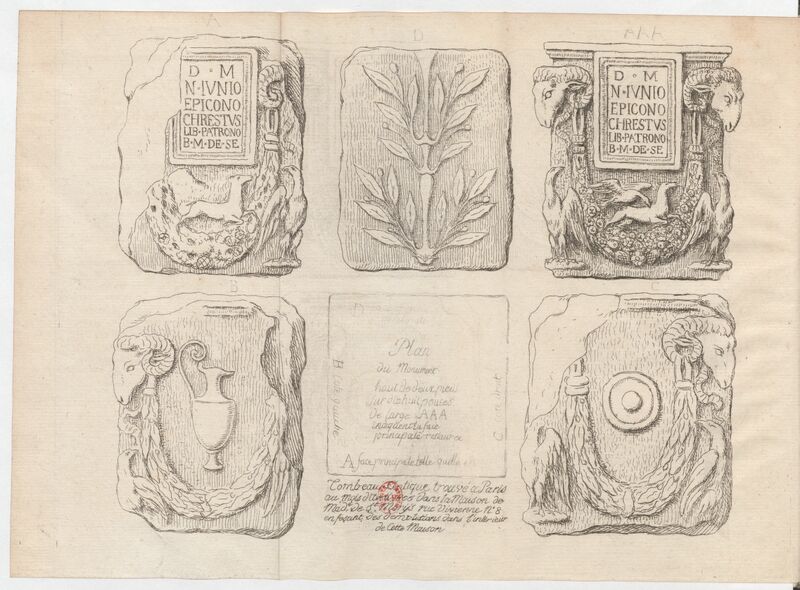 A
D
AAA
D · M
N · IVNIO
EPICONO
CHRESTVS
LIB · PATRONO
B · M · DE · SE
D · M
N · IVNIO
EPICONO
CHRESTVS
LIB · PATRONO
B · M · DE · SE
B
C
D
Plan
du Monument
haut de deux pieu
sur dixhuit pouces
De large AAA
indiquent la face
principale restauree
B gauche
C droit
A face principale telle quelle
Tombeau Antique trouvé a Paris
au mois dans la Maison de
Mad. de rue Vivienne N.º 8
en fesant des demolitions dans l'interieur
de Cette Maison